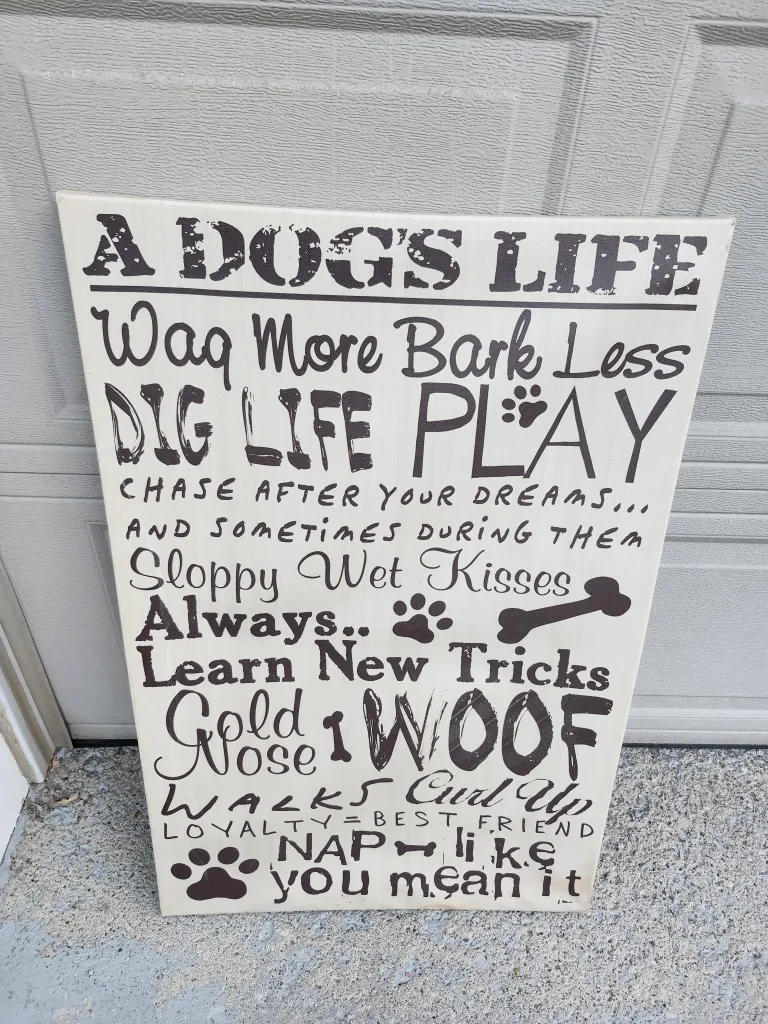 A DOG'S LIFE
Wag More Bark Less
DIG LIFE PLAY
CHASE AFTER YOUR DREAMS...
AND SOMETIMES DURING THEM
Sloppy Wet Kisses
Always..
Learn New Tricks
Cold Nose WOOF
WALKS Curl Up
LOYALTY = BEST FRIEND
NAP like
you mean it